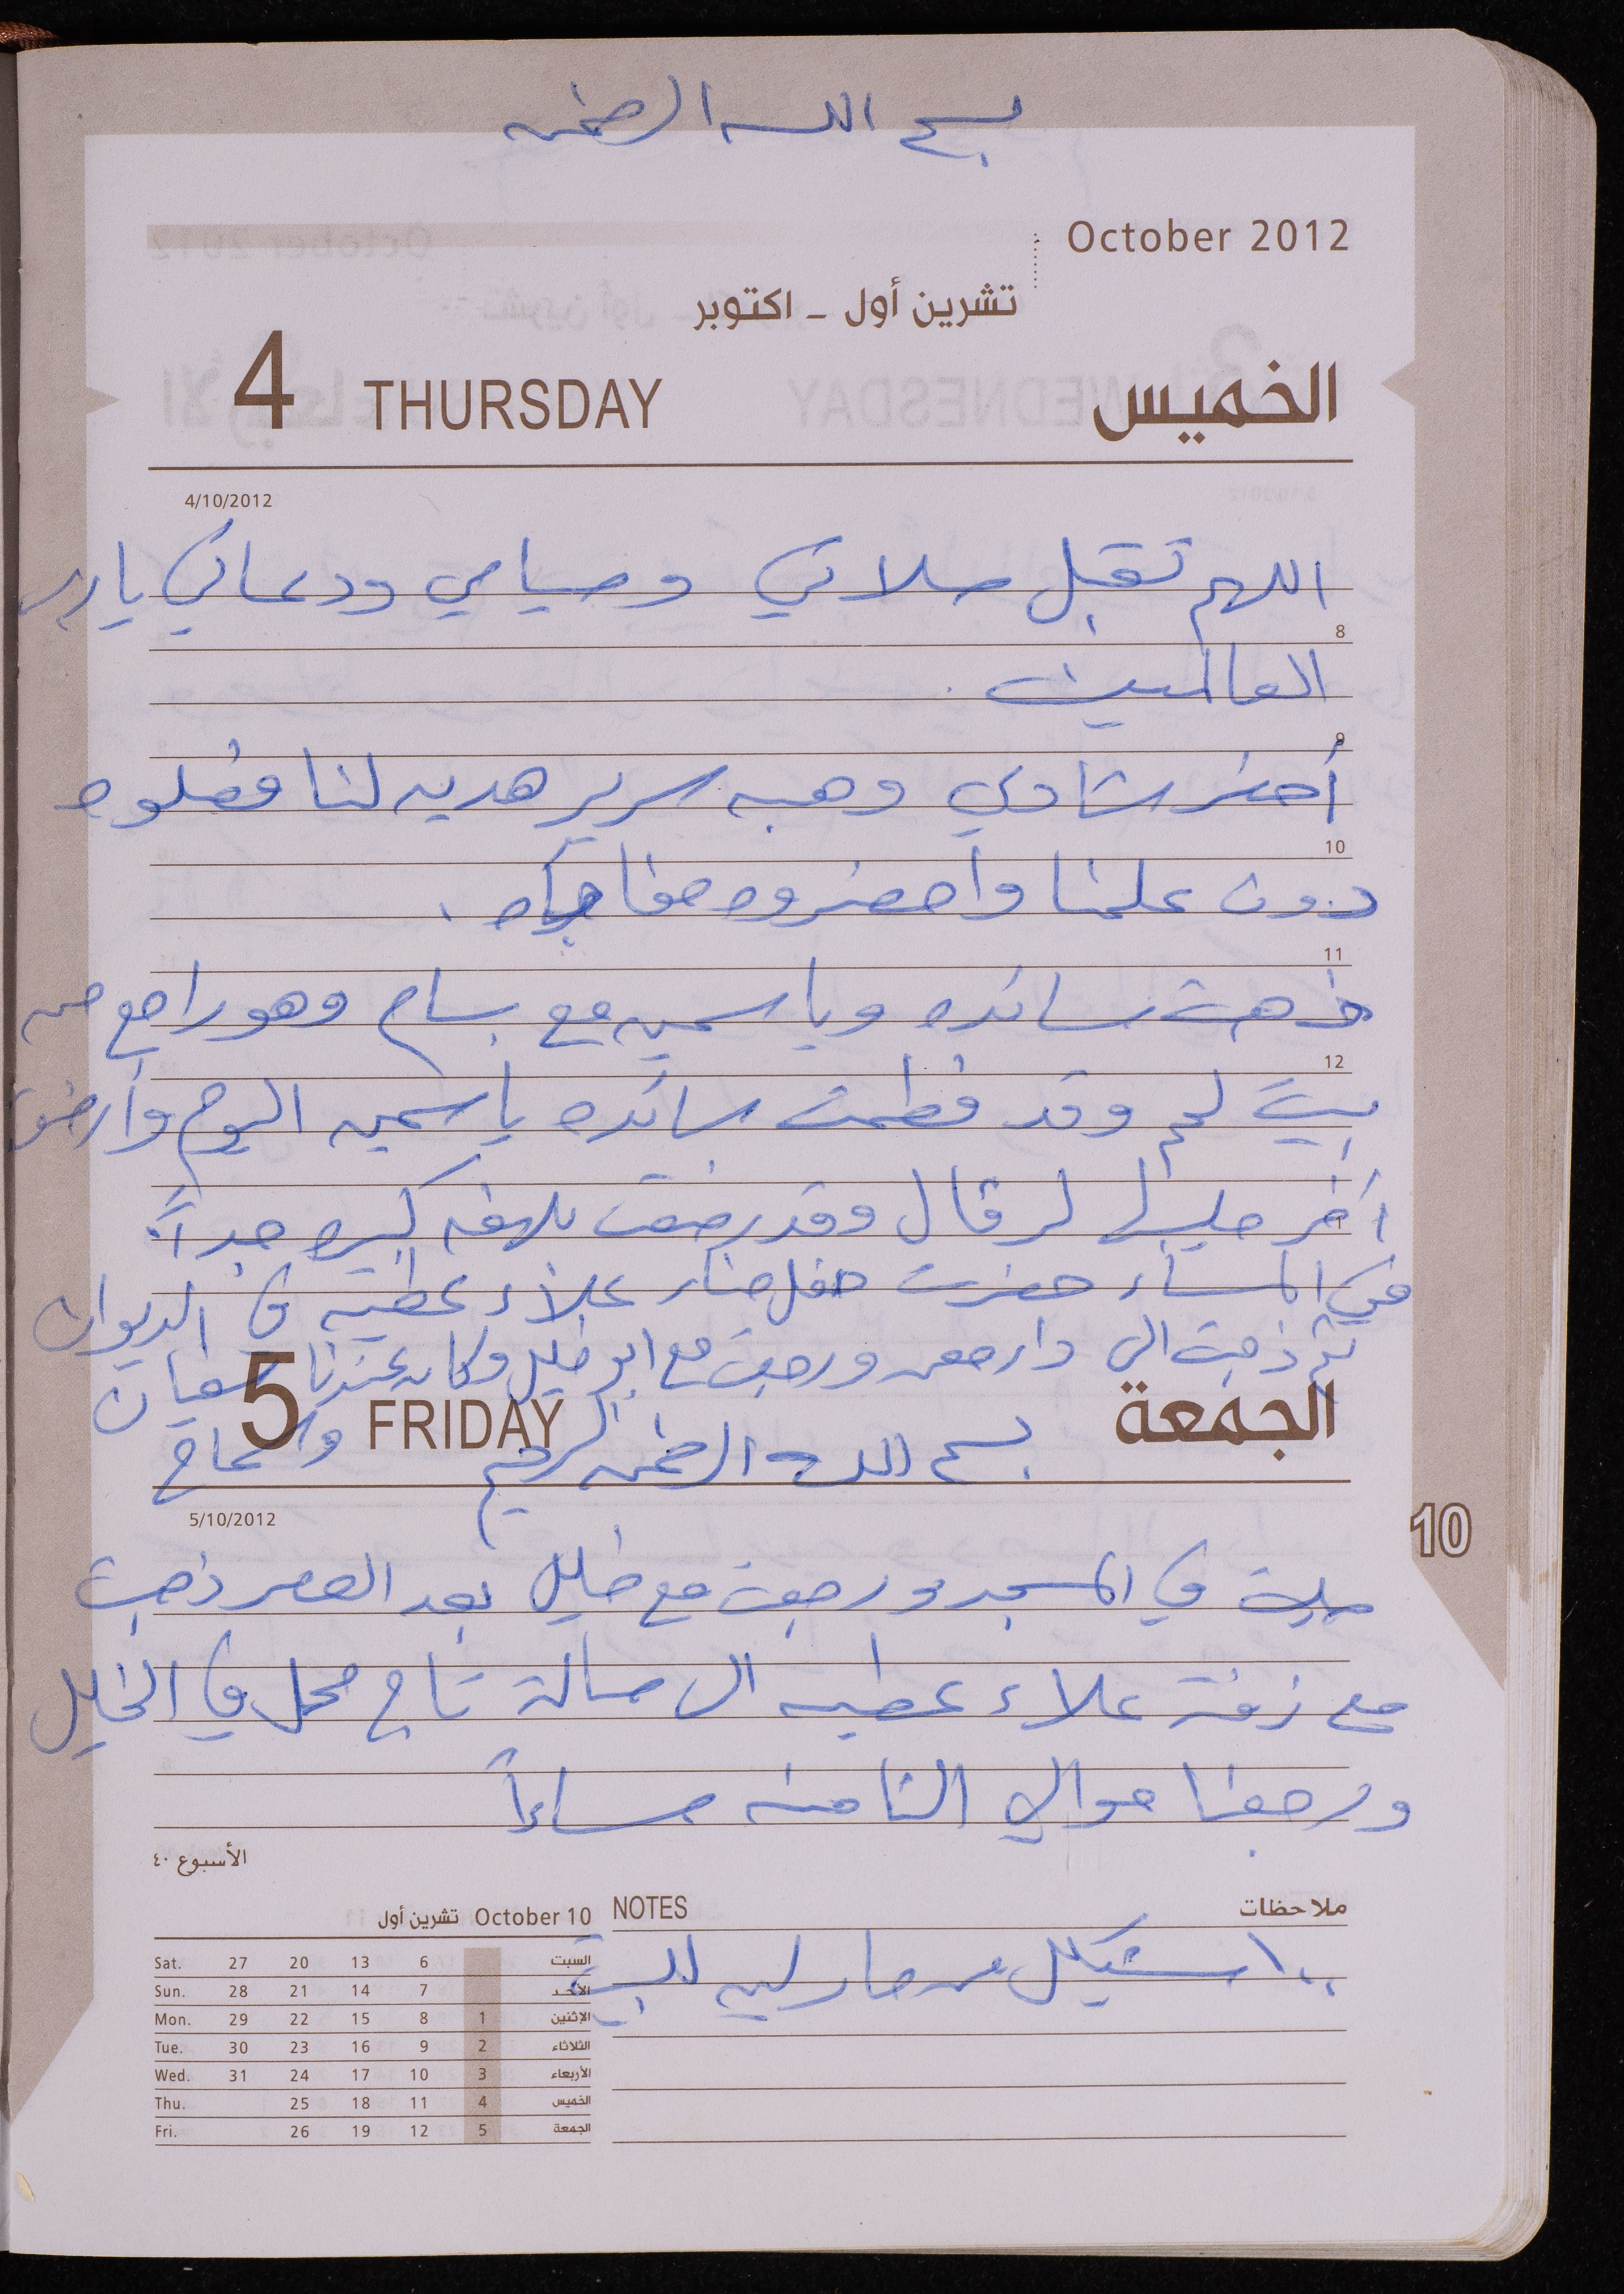 بسم الله الرحمن
October 2012
تشرين أول - اكتوبر
4 THURSDAY الخميس
4/10/2012
اللهم تقبل صلاتي وصيامي ودعائي يا رب
8
العالمين.
9
أحضر شادي وهبه سرير هديه لنا فعلوه
10
دون علمنا وأحضروه مفاجأه.
11
ذهبت سائده وياسمين مع بسام وهو راجع من
12
بيت لحم وقد فطمت سائده ياسمين اليوم وأرضعت
1
آخر حليبها وقد رضعت بلهفه كبيره جداً
في المساء حضرت حفل حناء علاء عطيه في الديوان
ثم ذهبت الى دار ورجعت مع ابو خليل وكان عندنا سفيان
5 FRIDAY الجمعة
وسماح
بسم الله الرحمن الرحيم
5/10/2012
صليت في المسجد ورجعت مع خليل بعد العصر ذهبت
مع زفة علاء عطيه الى صالة تاج محل في الخليل
ورجعنا حوالي الثامنه مساءاً
10
الأسبوع ٤٠
NOTES ملاحظات
١٠٠ شيكل للبيت
October 10 تشرين أول
Sat. 27 20 13 6 السبت
Sun. 28 21 14 7 الأحد
Mon. 29 22 15 8 1 الإثنين
Tue. 30 23 16 9 2 الثلاثاء
Wed. 31 24 17 10 3 الأربعاء
Thu. 25 18 11 4 الخميس
Fri. 26 19 12 5 الجمعة